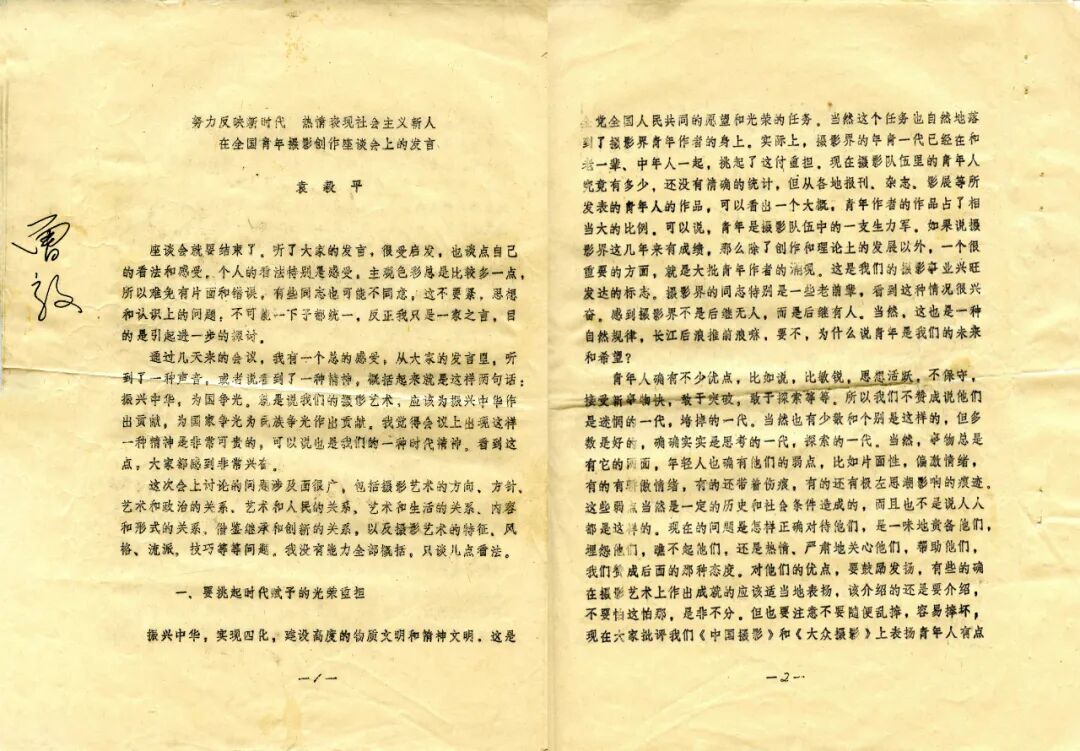 努力反映新时代　热情表现社会主义新人
在全国青年摄影创作座谈会上的发言
袁毅平
座谈会就要结束了。听了大家的发言，很受启发，也谈点自己
的看法和感受。个人的看法特别是感受，主观色彩总是比较多一点，
所以难免有片面和错误，有些同志也可能不同意，这不要紧，思想
和认识上的问题，不可能一下子都统一，反正我只是一家之言，目
的是引起进一步的探讨。
通过几天来的会议，我有一个总的感受，从大家的发言里，听
到了一种声音，或者说看到了一种精神，概括起来就是这样两句话：
振兴中华，为国争光。就是说我们的摄影艺术，应该为振兴中华作
出贡献，为国家争光为民族争光作出贡献。我觉得会议上出现这样
一种精神是非常可贵的，可以说也是我们的一种时代精神。看到这
点，大家都感到非常兴奋。
这次会上讨论的问题涉及面很广，包括摄影艺术的方向、方针、
艺术和政治的关系、艺术和人民的关系、艺术和生活的关系、内容
和形式的关系、借鉴继承和创新的关系，以及摄影艺术的特征、风
格、流派，技巧等等问题。我没有能力全部概括，只谈几点看法。
一、要挑起时代赋予的光荣重担
振兴中华，实现四化，建设高度的物质文明和精神文明，这是
—1—
全党全国人民共同的愿望和光荣的任务。当然这个任务也自然地落
到了摄影界青年作者的身上。实际上，摄影界的年青一代已经在和
老一辈、中年人一起，挑起了这付重担。现在摄影队伍里的青年人
究竟有多少，还没有清确的统计，但从各地报刊、杂志、影展等所
发表的青年人的作品，可以看出一个大概，青年作者的作品占了相
当大的比例。可以说，青年是摄影队伍中的一支生力军。如果说摄
影界这几年来有成绩，那么除了创作和理论上的发展以外，一个很
重要的方面，就是大批青年作者的涌现。这是我们的摄影事业兴旺
发达的标志。摄影界的同志特别是一些老前辈，看到这种情况很兴
奋。感到摄影界不是后继无人，而是后继有人。当然，这也是一种
自然规律，长江后浪推前浪嘛，要不，为什么说青年是我们的未来
和希望？
青年人确有不少优点，比如说，比敏锐，思想活跃，不保守，
接受新事物快，敢于突破，敢于探索等等。所以我们不赞成说他们
是迷惘的一代，垮掉的一代。当然也有少数和个别是这样的，但多
数是好的，确确实实是思考的一代，探索的一代。当然，事物总是
有它的两面，年轻人也确有他们的弱点，比如片面性，偏激情绪，
有的有骄傲情绪，有的还带着伤痕，有的还有极左思潮影响的痕迹。
这些弱点当然是一定的历史和社会条件造成的，而且也不是说人人
都是这样的。现在的问题是怎样正确对待他们，是一味地责备他们，
埋怨他们，瞧不起他们，还是热情、严肃地关心他们，帮助他们，
我们赞成后面的那种态度。对他们的优点，要鼓励发扬，有些的确
在摄影艺术上作出成就的应该适当地表扬，该介绍的还是要介绍，
不要怕这怕那，是非不分。但也要注意不要随便乱捧，容易捧坏，
现在大家批评我们《中国摄影》和《大众摄影》上表扬青年人有点
—2—